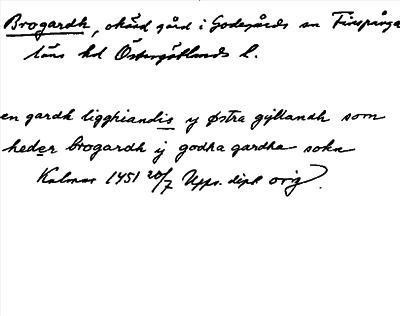 Brogardh, okänd gård i Godegårds sn Finspånga
läns hd Östergötlands l.
en gardh ligghiandis y østra gyllandh som
heder brogardh ij godha gardha sokn
Kalmar 1451 20/7 Upps. dipl orig.